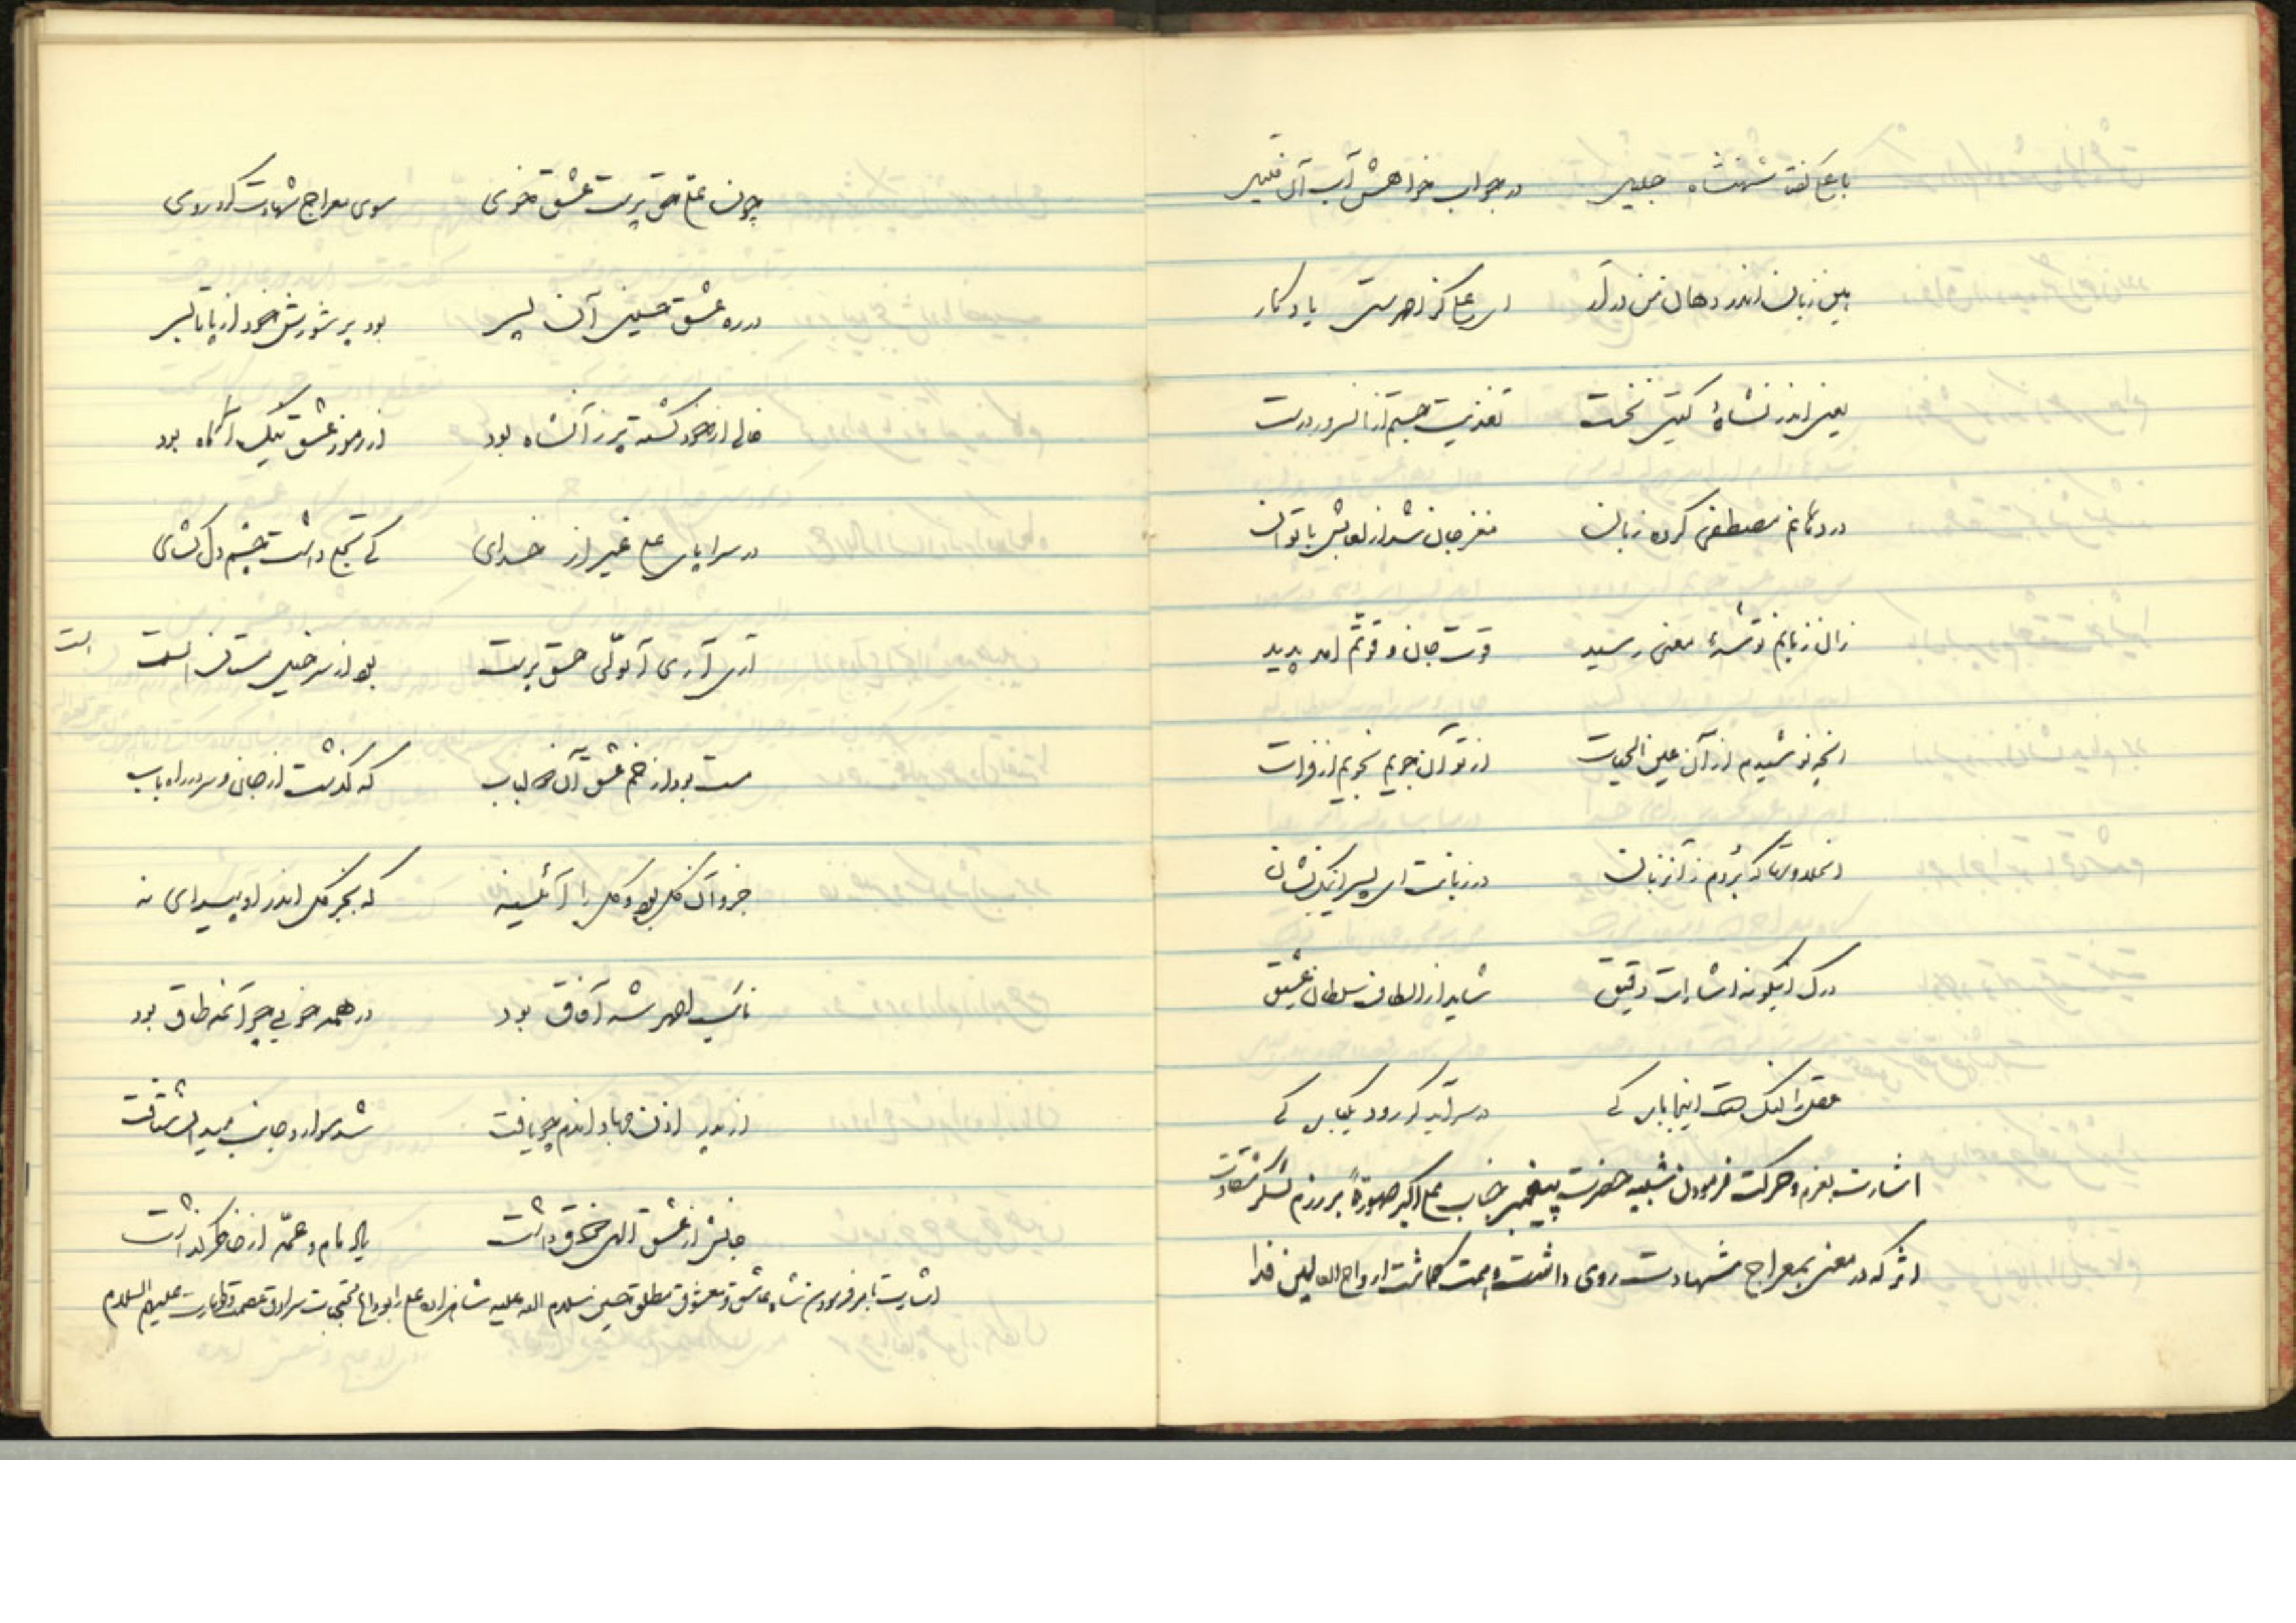 با علی گفت شهنشاه جلیل در جواب خواهش آب آن قتیل
هین زبان اندر دهان من درآر ای علی کز احمدستی یادگار
یعنی اندر نشاهٔ گیتی نخست تغذیت جستم از آن سرو درست
در دهانم مصطفی کرده زبان مغز جان شد از لعابش با توان
زان زبانم توشهٔ معنی رسید قوت جان و قوتم آمد پدید
آنچه نوشیدم از آن عین الحیات از تو آن جویم نجویم از فرات
که بردم زآن زبان در زبانت ای پسر اینک نشان
درک اینگونه اشارات دقیق شاید از الطاف سلطان عشیق
عقل را لنگ است اینجا پای کی در سرآید گر رود یکبار کی
اشارت بعزم و حرکت فرمودن شبیه حضرت پیغمبر جناب علی اکبر صورةً برزم لشکر شقاوت
اثر که در معنی بمعراج شهادت روی داشت و همت گماشت ارواح العالمین فدا
چون علی حق پرست عشق خوی سوی معراج شهادت کرد روی
در ره عشق حسینی آن پسر بود پر شورش ز خود از پا بسر
خالی از خود گشته پر زآن شاه بود از رموز عشق نیک آگاه بود
در سراپای علی غیر از خدای کی تجلی داشت چشم دل گشای
آری آری آن ولی حق پرست بود از سرخیل مستان الست
مست بود از خم عشق آن لباب که گذشت از جان و سر در راه باب
جزو آن کل بود و کل را آئینه که بجز کل اندر او پیدای نه
نائب احمد شه آفاق بود در همه خوبی چو آنمه طاق بود
از پدر اذن جهاد آندم چو یافت شد سوار و جانب میدان شتافت
جانش از عشق الهی ذوق داشت یاد مام و عمه از خاطر گذاشت
اشارت بامر فرمودن شاه عاشق و معشوق مطلق حسین سلام الله علیه شاهزاده علی را بوداع محتجبات سرادق عصمت و طهارت علیهم السلام